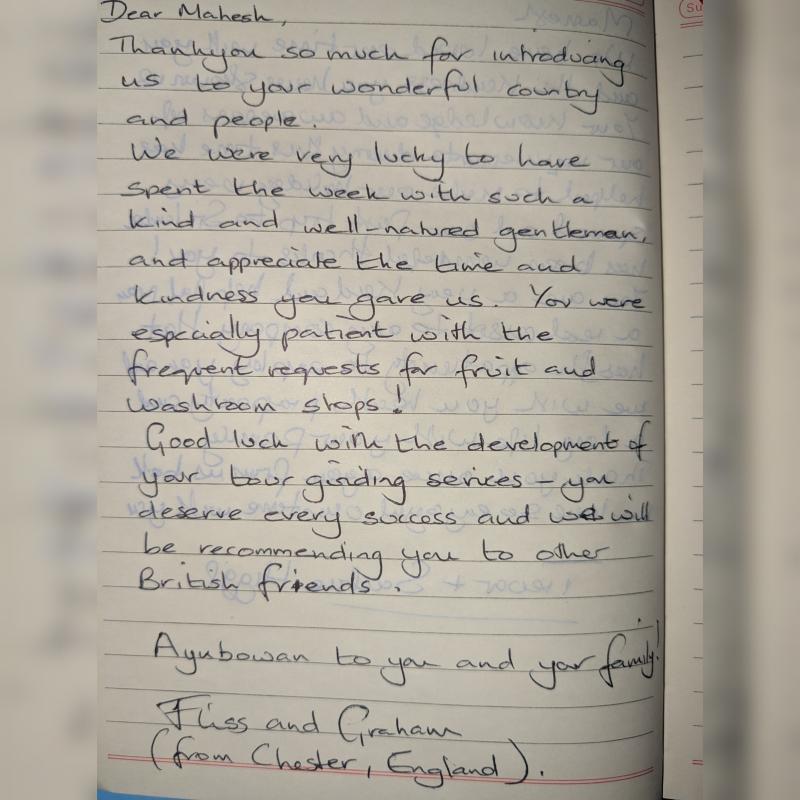 Dear Mahesh,
Thankyou so much for introducing
us to your wonderful country
and people.
We were very lucky to have
spent the week with such a
kind and well-natured gentleman,
and appreciate the time and
kindness you gave us. You were
especially patient with the
frequent requests for fruit and
washroom stops!
Good luck with the development of
your tour guiding services – you
deserve every success and we will
be recommending you to other
British friends.
Ayubowan to you and your family!
Fliss and Graham
(from Chester, England).